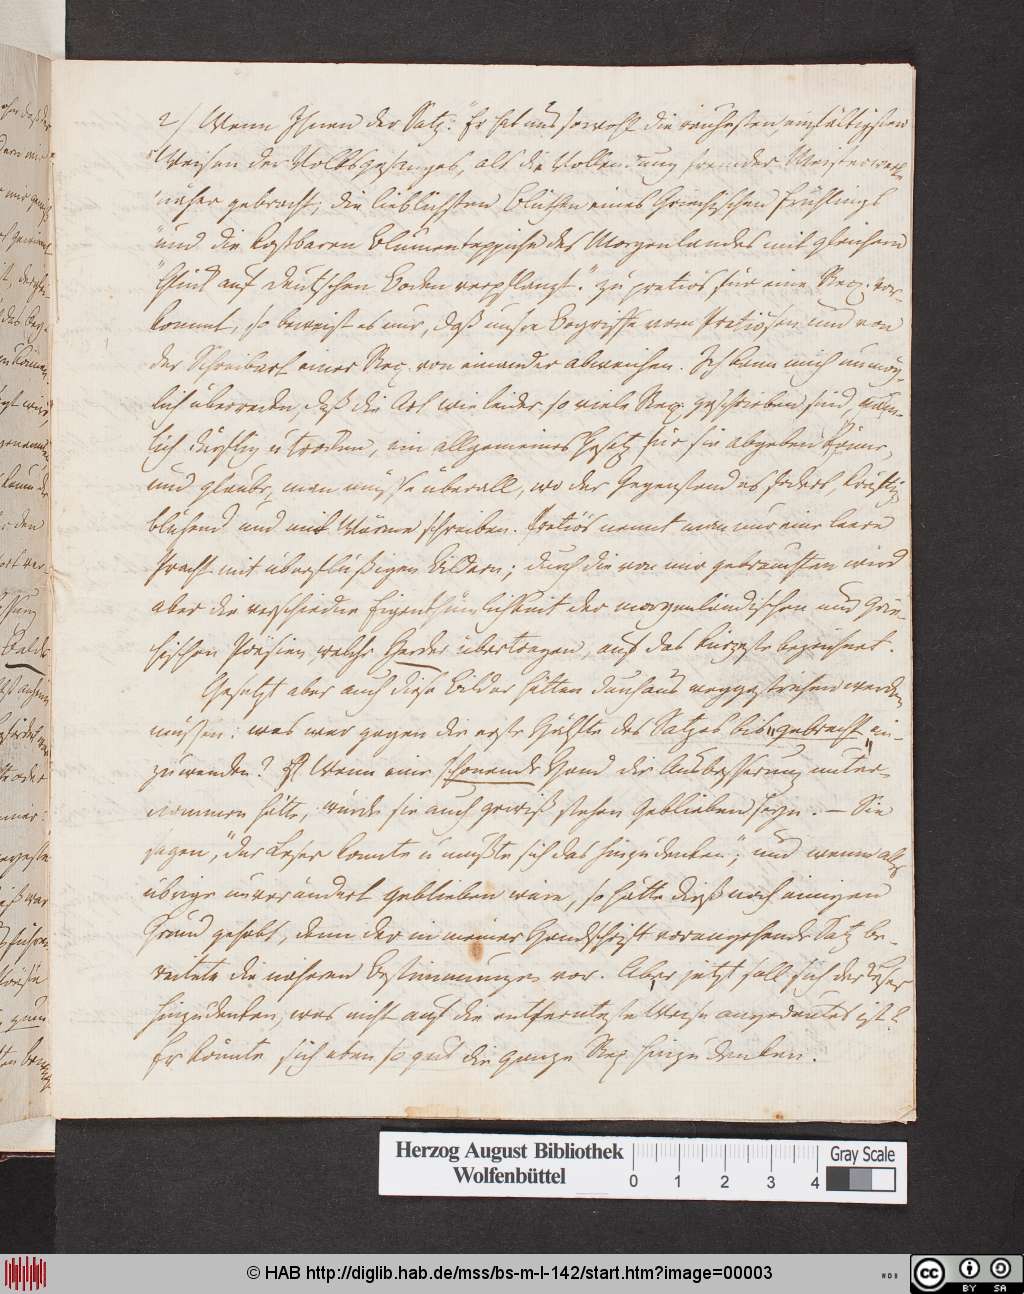 2/ Wenn Ihnen der Satz: "Er hat uns sowohl die rauhesten, einfältigsten
"Weisen des Volksgesanges, als die Vollendung fremder Meisterwerke
"näher gebracht; die lieblichsten Blüthen eines Griechischen Frühlings
"und die kostbaren Blumenteppiche des Morgenlandes mit gleichem
"Glück auf deutschen Boden verpflanzt." zu pretiös für eine Rec. vor-
kommt, so beweist es nur, daß unsre Begriffe vom Pretiösen und von
der Schreibart einer Rec. von einander abweichen. Ich kann mich unmög-
lich überreden, daß die Art wie leider so viele Rec. geschrieben sind, näm-
lich dürftig u trocken, ein allgemeines Gesetz für sie abgeben könne,
und glaube, man müsse überall, wo der Gegenstand es fodert, kräftig
blühend und mit Wärme schreiben. Pretiös nennt man nur eine leere
Pracht mit überflüßigen Bildern; durch die von mir gebrauchten wird
aber die verschiedne Eigenthümlichkeit der morgenländischen und Grie-
chischen Poesieen, welche Herder übertragen, auf das kürzeste bezeichnet.
Gesetzt aber auch diese Bilder hätten durchaus weggestrichen werden
müssen: was war gegen die erste Hälfte des Satzes bis "gebracht" ein-
zuwenden? Wenn eine schonende Hand die Ausbesserung unter-
nommen hätte, würde sie auch gewiß stehen geblieben seyn. — Sie
sagen, "der Leser konnte u mußte sich das hinzudenken", und wenn alles
übrige unverändert geblieben wäre, so hätte dieß noch einigen
Grund gehabt, denn der in meiner Handschrift vorangehende Satz be-
reitete die näheren Bestimmungen vor. Aber jetzt soll sich der Leser
hinzudenken, was nicht auf die entfernteste Weise angedeutet ist?
Er könnte sich eben so gut die ganze Rec. hinzu denken.
Herzog August Bibliothek
Wolfenbüttel
0 1 2 3 4
Gray Scale
© HAB http://diglib.hab.de/mss/bs-m-l-142/start.htm?image=00003
cc BY SA